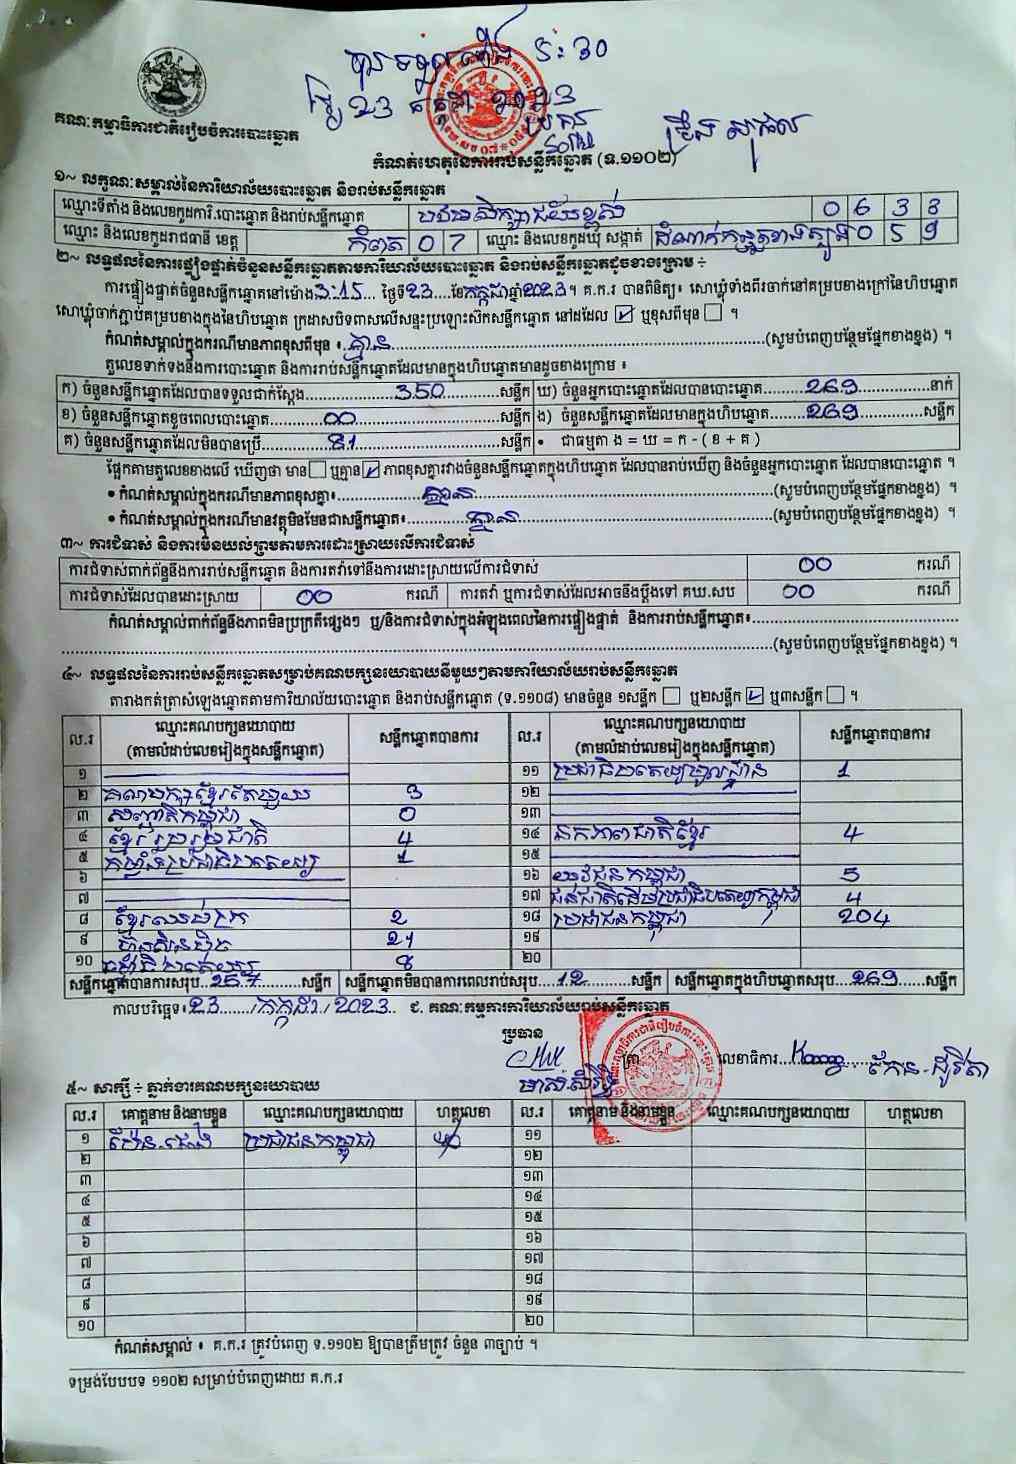 បានទទួលម៉ោង 5:30
ថ្ងៃ 23 កក្កដា 2023
ប្រធាន
គណៈកម្មាធិការជាតិរៀបចំការបោះឆ្នោត
កំណត់ហេតុនៃការរាប់សន្លឹកឆ្នោត (ទ.១១០២)
១~ លក្ខណៈសម្គាល់នៃការិយាល័យបោះឆ្នោត និងរាប់សន្លឹកឆ្នោត
ឈ្មោះទីតាំង និងលេខកូដការិ.បោះឆ្នោត និងរាប់សន្លឹកឆ្នោត បឋមសិក្សាជ័យខ្ពស់ 0 6 3 3
ឈ្មោះ និងលេខកូដរាជធានី ខេត្ត កំពត 0 7 ឈ្មោះ និងលេខកូដឃុំ សង្កាត់ ដំណាក់កន្ទួតខាងត្បូង 0 5 9
២~ លទ្ធផលនៃការផ្ទៀងផ្ទាត់ចំនួនសន្លឹកឆ្នោតតាមការិយាល័យបោះឆ្នោត និងរាប់សន្លឹកឆ្នោតដូចខាងក្រោម ÷
ការផ្ទៀងផ្ទាត់ចំនួនសន្លឹកឆ្នោតនៅម៉ោង 3:15 ថ្ងៃទី 23 ខែ កក្កដា ឆ្នាំ 2023 ។ គ.ក.រ បានពិនិត្យ៖ សោឃ្លុំទាំងពីរចាក់នៅគម្របខាងក្រៅនៃហិបឆ្នោត
សោឃ្លុំចាក់ភ្ជាប់គម្របខាងក្នុងនៃហិបឆ្នោត ក្រដាសបិទពាសលើសន្ទះប្រឡោះស៊កសន្លឹកឆ្នោត នៅដដែល ☑ ឬខុសពីមុន ☐ ។
កំណត់សម្គាល់ក្នុងករណីមានភាពខុសពីមុន ៖ គ្មាន (សូមបំពេញបន្ថែមផ្នែកខាងខ្នង) ។
តួលេខទាក់ទងនឹងការបោះឆ្នោត និងការរាប់សន្លឹកឆ្នោតដែលមានក្នុងហិបឆ្នោតមានដូចខាងក្រោម ៖
ក) ចំនួនសន្លឹកឆ្នោតដែលបានទទួលជាក់ស្តែង 350 សន្លឹក ឃ) ចំនួនអ្នកបោះឆ្នោតដែលបានបោះឆ្នោត 269 នាក់
ខ) ចំនួនសន្លឹកឆ្នោតខូចពេលបោះឆ្នោត 00 សន្លឹក ង) ចំនួនសន្លឹកឆ្នោតដែលមានក្នុងហិបឆ្នោត 269 សន្លឹក
គ) ចំនួនសន្លឹកឆ្នោតដែលមិនបានប្រើ 81 សន្លឹក • ជាធម្មតា ង = ឃ = ក - ( ខ + គ )
ផ្អែកតាមតួលេខខាងលើ ឃើញថា មាន ☐ ឬគ្មាន ☑ ភាពខុសគ្នារវាងចំនួនសន្លឹកឆ្នោតក្នុងហិបឆ្នោត ដែលបានរាប់ឃើញ និងចំនួនអ្នកបោះឆ្នោត ដែលបានបោះឆ្នោត ។
• កំណត់សម្គាល់ក្នុងករណីមានភាពខុសគ្នា៖ គ្មាន (សូមបំពេញបន្ថែមផ្នែកខាងខ្នង) ។
• កំណត់សម្គាល់ក្នុងករណីមានវត្ថុមិនមែនជាសន្លឹកឆ្នោត៖ គ្មាន (សូមបំពេញបន្ថែមផ្នែកខាងខ្នង) ។
៣~ ការជំទាស់ និងការមិនយល់ព្រមតាមការដោះស្រាយលើការជំទាស់
ការជំទាស់ពាក់ព័ន្ធនឹងការរាប់សន្លឹកឆ្នោត និងការតវ៉ាទៅនឹងការដោះស្រាយលើការជំទាស់ 00 ករណី
ការជំទាស់ដែលបានដោះស្រាយ 00 ករណី ការតវ៉ា ឬការជំទាស់ដែលអាចនឹងប្តឹងទៅ គឃ.សប 00 ករណី
កំណត់សម្គាល់ពាក់ព័ន្ធនឹងភាពមិនប្រក្រតីផ្សេងៗ ឬ/និងការជំទាស់ក្នុងអំឡុងពេលនៃការផ្ទៀងផ្ទាត់ និងការរាប់សន្លឹកឆ្នោត៖
(សូមបំពេញបន្ថែមផ្នែកខាងខ្នង) ។
៤~ លទ្ធផលនៃការរាប់សន្លឹកឆ្នោតសម្រាប់គណបក្សនយោបាយនីមួយៗតាមការិយាល័យរាប់សន្លឹកឆ្នោត
តារាងកត់ត្រាសំឡេងឆ្នោតតាមការិយាល័យបោះឆ្នោត និងរាប់សន្លឹកឆ្នោត (ទ.១១០៨) មានចំនួន ១សន្លឹក ☐ ឬ២សន្លឹក ☑ ឬ៣សន្លឹក ☐ ។
ល.រ ឈ្មោះគណបក្សនយោបាយ (តាមលំដាប់លេខរៀងក្នុងសន្លឹកឆ្នោត) សន្លឹកឆ្នោតបានការ ល.រ ឈ្មោះគណបក្សនយោបាយ (តាមលំដាប់លេខរៀងក្នុងសន្លឹកឆ្នោត) សន្លឹកឆ្នោតបានការ
១ ១១ ប្រជាធិបតេយ្យមូលដ្ឋាន 1
២ គណបក្សខ្មែរតែមួយ 3 ១២
៣ សញ្ជាតិកម្ពុជា 0 ១៣
៤ ខ្មែររួបរួមជាតិ 4 ១៤ ឯកភាពជាតិខ្មែរ 4
៥ កម្លាំងប្រជាធិបតេយ្យ 1 ១៥
៦ ១៦ យុវជនកម្ពុជា 5
៧ ១៧ ជនជាតិដើមប្រជាធិបតេយ្យកម្ពុជា 4
៨ ខ្មែរឈប់ក្រ 2 ១៨ ប្រជាជនកម្ពុជា 204
៩ ហ៊្វុនស៊ិនប៉ិច 21 ១៩
១០ 8 ២០
សន្លឹកឆ្នោតបានការសរុប 257 សន្លឹក សន្លឹកឆ្នោតមិនបានការពេលរាប់សរុប 12 សន្លឹក សន្លឹកឆ្នោតក្នុងហិបឆ្នោតសរុប 269 សន្លឹក
កាលបរិច្ឆេទ៖ 23 / កក្កដា / 2023 ជ. គណៈកម្មការការិយាល័យរាប់សន្លឹកឆ្នោត
ប្រធាន
ត្រា លេខាធិការ
៥~ សាក្សី ÷ ភ្នាក់ងារគណបក្សនយោបាយ
ល.រ គោត្តនាម និងនាមខ្លួន ឈ្មោះគណបក្សនយោបាយ ហត្ថលេខា ល.រ គោត្តនាម និងនាមខ្លួន ឈ្មោះគណបក្សនយោបាយ ហត្ថលេខា
១ ប្រជាជនកម្ពុជា ១១
២ ១២
៣ ១៣
៤ ១៤
៥ ១៥
៦ ១៦
៧ ១៧
៨ ១៨
៩ ១៩
១០ ២០
កំណត់សម្គាល់ ៖ គ.ក.រ ត្រូវបំពេញ ទ.១១០២ ឱ្យបានត្រឹមត្រូវ ចំនួន ៣ច្បាប់ ។
ទម្រង់បែបបទ ១១០២ សម្រាប់បំពេញដោយ គ.ក.រ